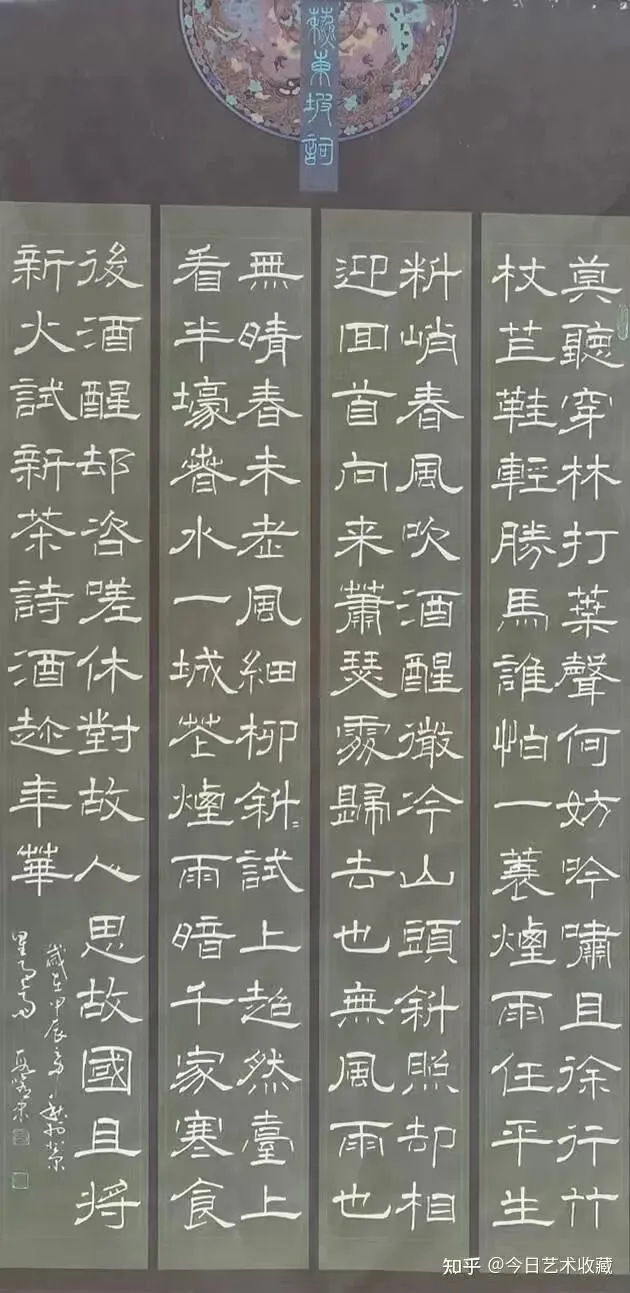 蘇東坡詞
莫聽穿林打葉聲何妨吟嘯且徐行竹
杖芒鞋輕勝馬誰怕一蓑煙雨任平生
料峭春風吹酒醒微冷山頭斜照却相
迎回首向来蕭瑟處歸去也無風雨也
無晴春未老風細柳斜〻試上超然臺上
看半壕春水一城花煙雨暗千家寒食
後酒醒却咨嗟休對故人思故國且將
新火試新茶詩酒趁年華
歲在甲辰
知乎 @今日艺术收藏